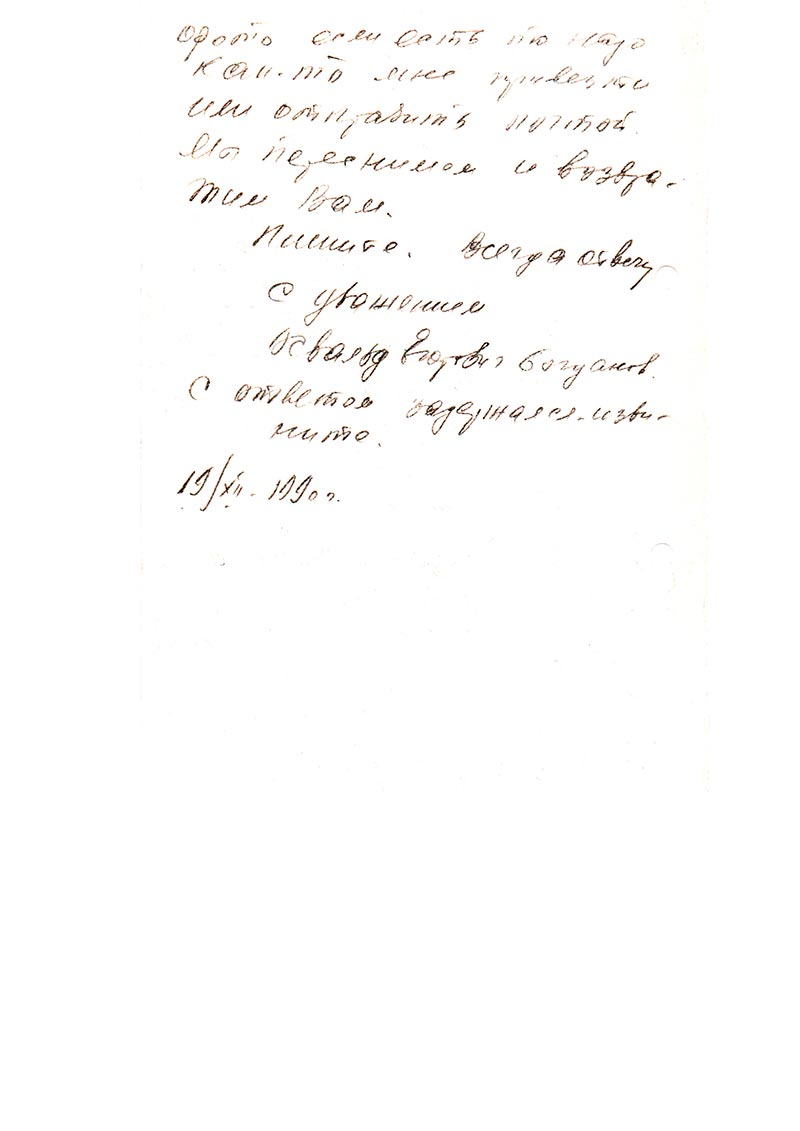 фото если есть то надо
как-то мне привезти
или отправить почтой.
Мы переснимем и возвра-
тим Вам.
Пишите. Всегда отвечу
С уважением
Освальд Богданов.
С ответом задержался - изви-
ните.
19/XII - 1990 г.